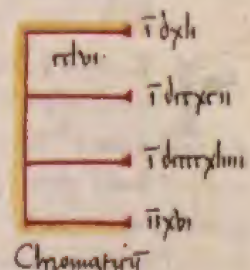 ī dxii
cclvi·
ī dccxcii
ī dccccxliiii
īī xvi
Chromaticū